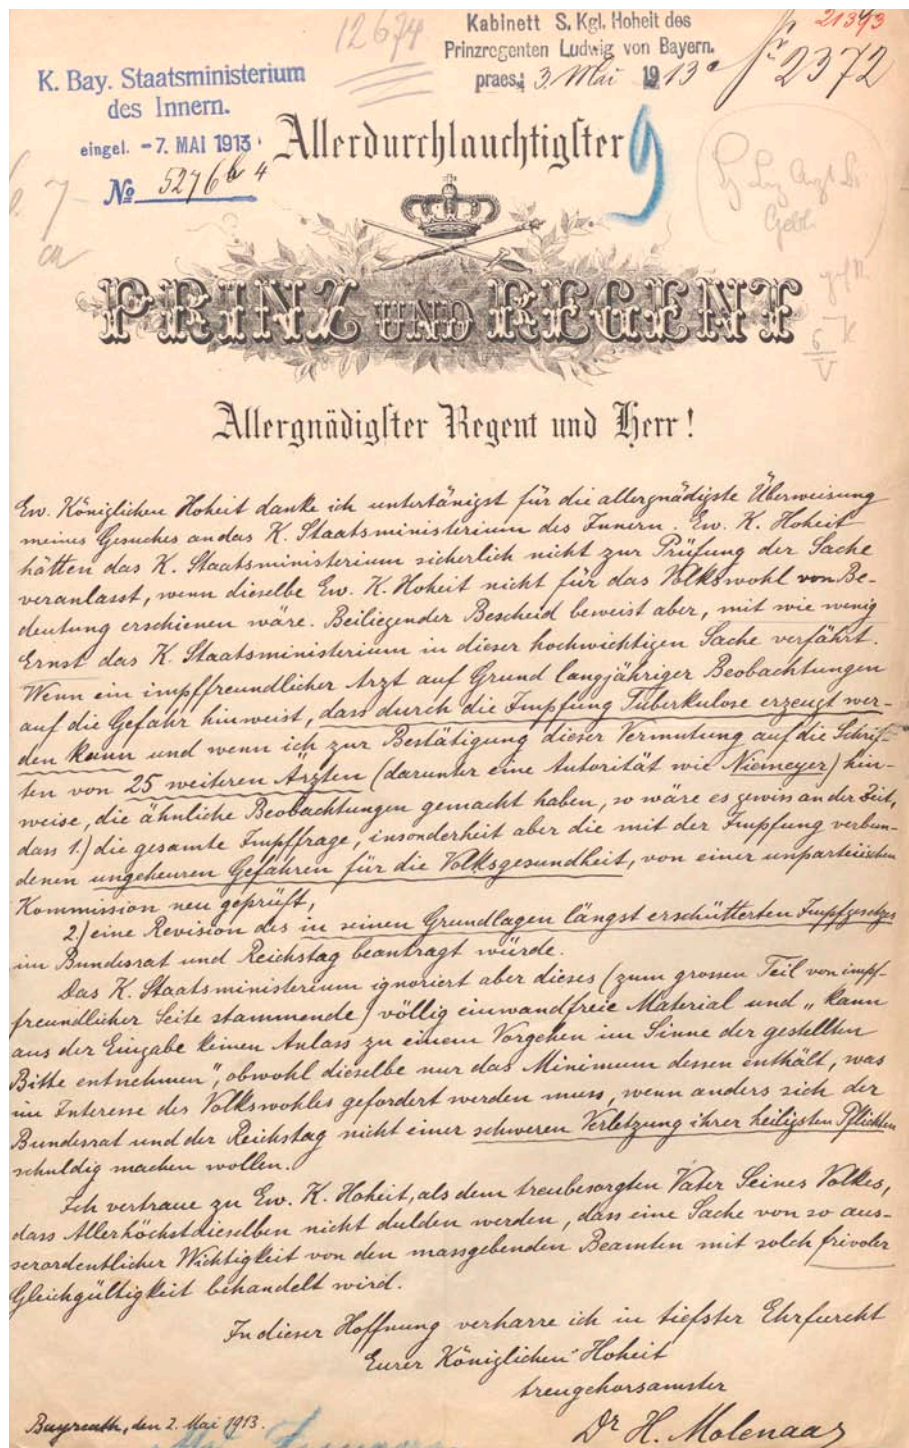 12674
Kabinett S. Kgl. Hoheit des
Prinzregenten Ludwig von Bayern.
praes. 3. Mai 1913
21393
2372
K. Bay. Staatsministerium
des Innern.
eingel. -7. MAI 1913
№ 5276 b 4
9
Allerdurchlauchtigster
PRINZ UND REGENT
6
V
Allergnädigster Regent und Herr!
Ew. Königlichen Hoheit danke ich untertänigst für die allergnädigste Überweisung
meines Gesuches an das K. Staatsministerium des Innern. Ew. K. Hoheit
hätten das K. Staatsministerium sicherlich nicht zur Prüfung der Sache
veranlasst, wenn dieselbe Ew. K. Hoheit nicht für das Volkswohl von Be-
deutung erschienen wäre. Beiliegender Bescheid beweist aber, mit wie wenig
Ernst das K. Staatsministerium in dieser hochwichtigen Sache verfährt.
Wenn ein impffreundlicher Arzt auf Grund langjähriger Beobachtungen
auf die Gefahr hinweist, dass durch die Impfung Tuberkulose erzeugt wer-
den kann und wenn ich zur Bestätigung dieser Vermutung auf die Schrif-
ten von 25 weiteren Ärzten (darunter eine Autorität wie Niemeyer) hin-
weise, die ähnliche Beobachtungen gemacht haben, so wäre es gewiss an der Zeit,
dass 1.) die gesamte Impffrage, insonderheit aber die mit der Impfung verbun-
denen ungeheuren Gefahren für die Volksgesundheit, von einer unparteiischen
Kommission neu geprüft,
2.) eine Revision des in seinen Grundlagen längst erschütterten Impfgesetzes
im Bundesrat und Reichstag beantragt würde.
Das K. Staatsministerium ignoriert aber dieses (zum grossen Teil von impf-
freundlicher Seite stammende) völlig einwandfreie Material und „kann
aus der Eingabe keinen Anlass zu einem Vorgehen im Sinne der gestellten
Bitte entnehmen", obwohl dieselbe nur das Minimum dessen enthält, was
im Interesse des Volkswohles gefordert werden muss, wenn anders sich der
Bundesrat und der Reichstag nicht einer schweren Verletzung ihrer heiligsten Pflichten
schuldig machen wollen.
Ich vertraue zu Ew. K. Hoheit, als dem treubesorgten Vater Seines Volkes,
dass Allerhöchstdieselben nicht dulden werden, dass eine Sache von so aus-
serordentlicher Wichtigkeit von den massgebenden Beamten mit solch frivoler
Gleichgültigkeit behandelt wird.
In dieser Hoffnung verharre ich in tiefster Ehrfurcht
Eurer Königlichen Hoheit
treugehorsamster
Bayreuth, den 2. Mai 1913.
Dr H. Molenaar